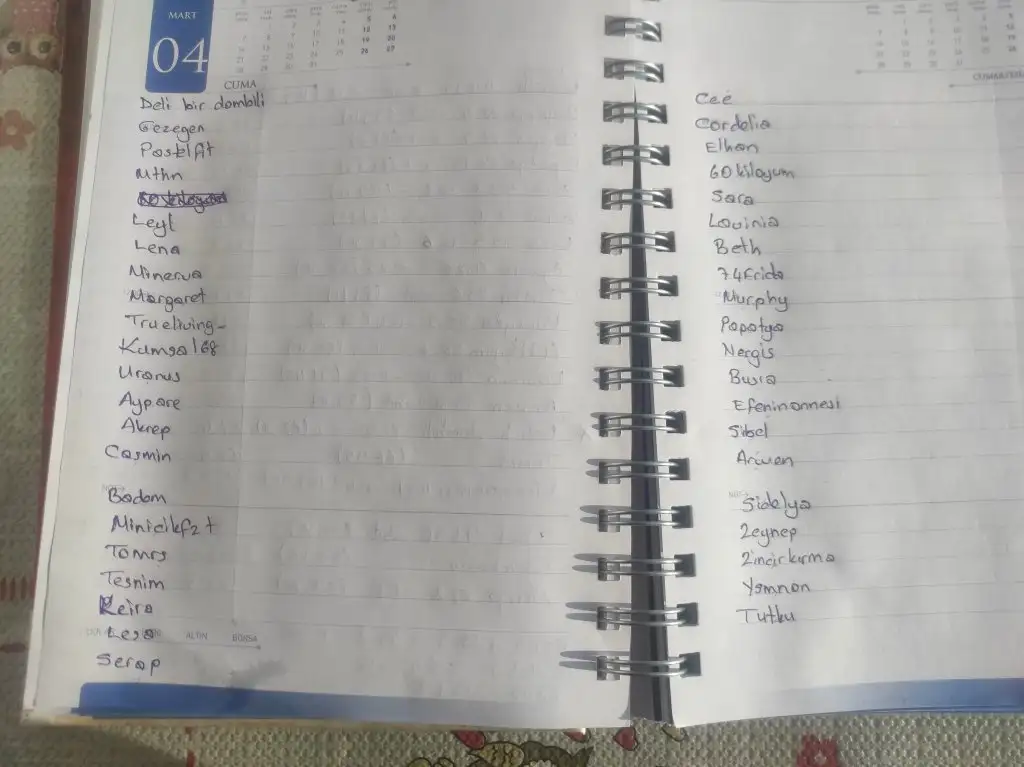 MART
04
CUMA
Deli bir dombili
Gezegen
Pastelfit
Mthn
Leyl
Lena
Minerva
Margaret
Trueliving-
Kumsal68
Uranus
Aypare
Akrep
Casmin
Badem
Minicikfzt
Tomrs
Tesnim
Keira
ALTIN BORSA
Serap
CUMARTESİ
Ceé
Cordelia
Elhan
60kiloyum
Sara
Lavinia
Beth
74Frida
Murphy
Papatya
Nergis
Busra
Efeninannesi
Sibel
Arwen
Sidelya
Zeynep
Zincirkırma
Ysmnnn
Tutku